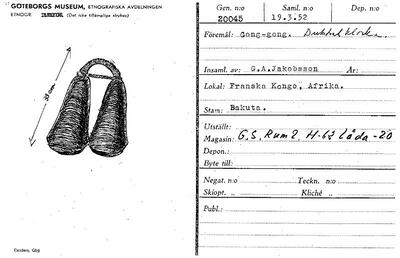 GÖTEBORGS MUSEUM, ETNOGRAFISKA AVDELNINGEN
ETNOGR. (Det icke tillämpliga strykes)
33 cm
Gen. n:o Saml. n:o Dep. n:o
20045 19.3.52
Föremål: Gong-gong. Dubbelklocka.
Insaml. av: G.A.Jakobsson År:
Lokal: Franska Kongo, Afrika.
Stam: Bakuta.
Utställt:
Magasin: G.S. Rum 2. H-63 låda-20
Depon.:
Byte till:
Negat. n:o Teckn. n:o
Skiopt. „ Kliché „
Publ.: